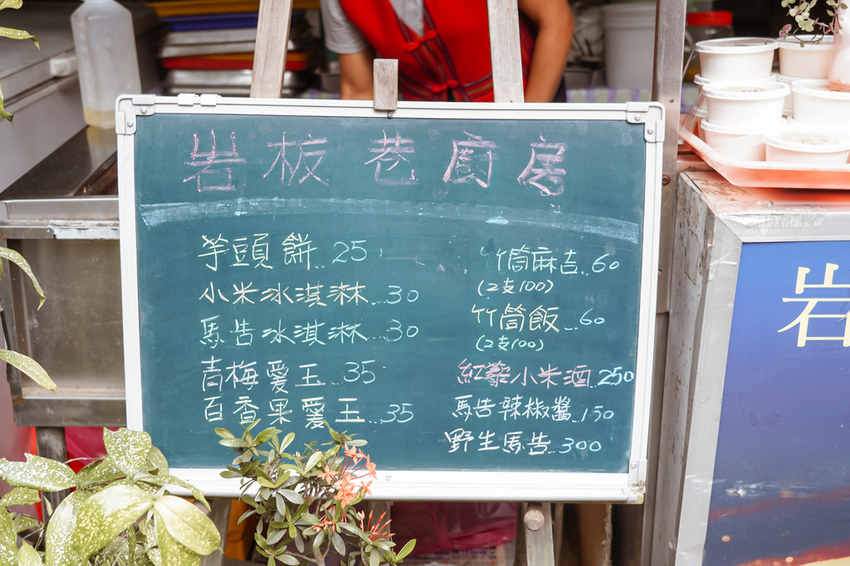 岩板巷廚房
芋頭餅...25
小米冰淇淋...30
馬告冰淇淋...30
青梅愛玉...35
百香果愛玉...35
竹筒麻吉..60
(2支100)
竹筒飯...60
(2支100)
紅藜小米酒..250
馬告辣椒醬..150
野生馬告..300
岩